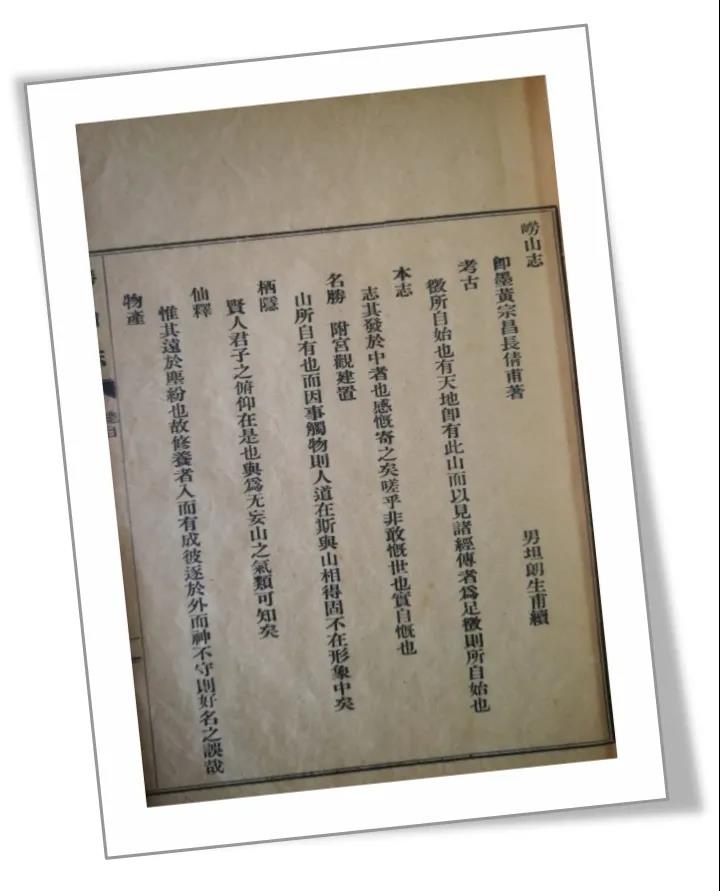 嶗山志
即墨黃宗昌長倩甫著　男坦朗生甫續
考古
徵所自始也有天地即有此山而以見諸經傳者爲足徵則所自始也
本志
志其發於中者也感慨寄之矣嗟乎非敢慨世也實自慨也
名勝　附宮觀建置
山所自有也而因事觸物則人道在斯與山相得固不在形象中矣
栖隱
賢人君子之俯仰在是也與爲无妄山之氣類可知矣
仙釋
惟其遠於塵紛也故修養者入而有成彼逐於外而神不守則好名之誤哉
物產